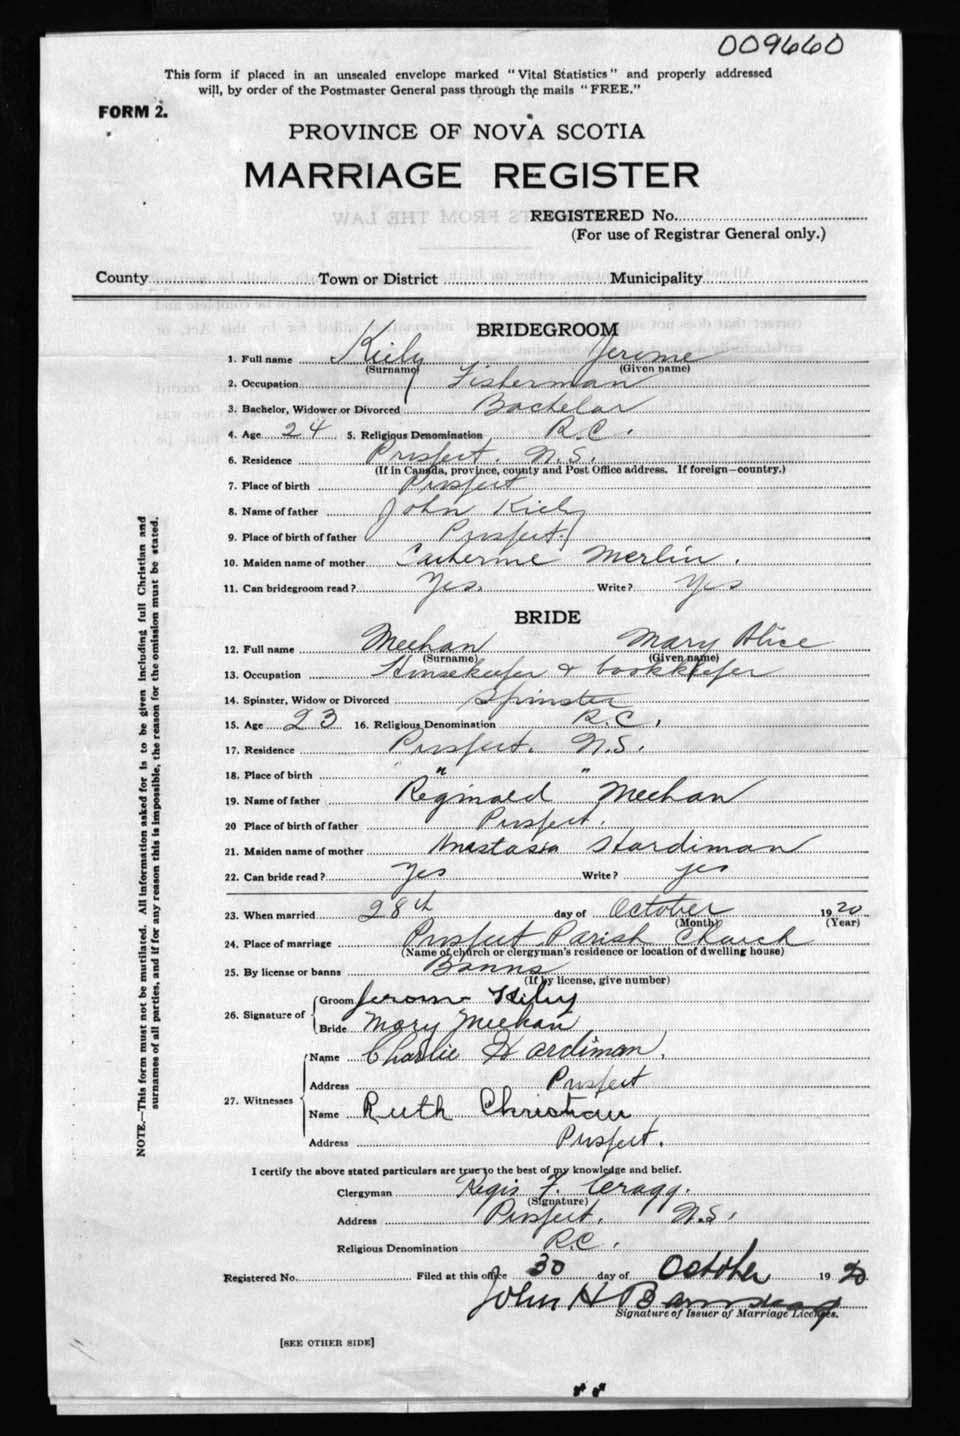 009660
This form if placed in an unsealed envelope marked "Vital Statistics" and properly addressed
will, by order of the Postmaster General pass through the mails "FREE."
FORM 2.
PROVINCE OF NOVA SCOTIA
MARRIAGE REGISTER
REGISTERED No.
(For use of Registrar General only.)
County Town or District Municipality
BRIDEGROOM
1. Full name Kiely Jerome
(Surname) (Given name)
2. Occupation Fisherman
3. Bachelor, Widower or Divorced Bachelor
4. Age 24 5. Religious Denomination R.C.
6. Residence Prospect. N.S.
(If in Canada, province, county and Post Office address. If foreign—country.)
7. Place of birth Prospect
8. Name of father John Kiely
9. Place of birth of father Prospect.
10. Maiden name of mother Catherine Merlin.
11. Can bridegroom read? Yes. Write? Yes
BRIDE
12. Full name Meehan Mary Alice
(Surname) (Given name)
13. Occupation Housekeeper & bookkeeper
14. Spinster, Widow or Divorced Spinster
15. Age 23 16. Religious Denomination R.C.
17. Residence Prospect. N.S.
18. Place of birth " "
19. Name of father Reginald Meehan
20 Place of birth of father Prospect.
21. Maiden name of mother Anastasia Hardiman
22. Can bride read? Yes Write? yes
23. When married 28th day of October 1920
(Month) (Year)
24. Place of marriage Prospect Parish Church
(Name of church or clergyman's residence or location of dwelling house)
25. By license or banns Banns
(If by license, give number)
26. Signature of Groom Jerome Kiely
Bride Mary Meehan
27. Witnesses Name Charlie Hardiman.
Address Prospect
Name Ruth Christian
Address Prospect.
I certify the above stated particulars are true to the best of my knowledge and belief.
Clergyman Regis F. Cragg.
(Signature)
Address Prospect. N.S.
Religious Denomination R.C.
Registered No. Filed at this office 30 day of October 1920
John H
Signature of Issuer of Marriage Licenses.
[SEE OTHER SIDE]
NOTE.—This form must not be mutilated. All information asked for is to be given including full Christian and
surnames of all parties, and if for any reason this is impossible, the reason for the omission must be stated.